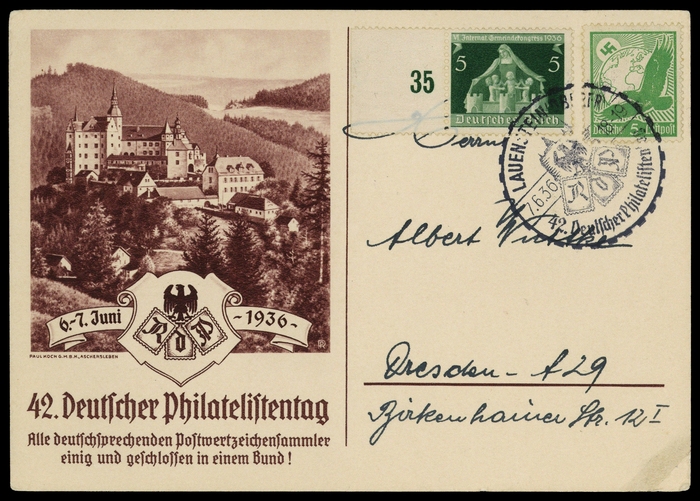 6.-7. Juni
RdP
-1936-
PAUL KOCH G.M.B.H., ASCHERSLEBEN
42. Deutscher Philatelistentag
Alle deutschsprechenden Postwertzeichensammler
einig und geschlossen in einem Bund!
35
VI. Internat. Gemeindekongress 1936
5 5
Deutsches Reich
Deutsche 5 Luftpost
LAUENSTEIN
7.6.36
RdP
42. Deutscher Philatelisten
Herrn
Albert
Dresden - A 29
Birkenhainer Str. 12 I